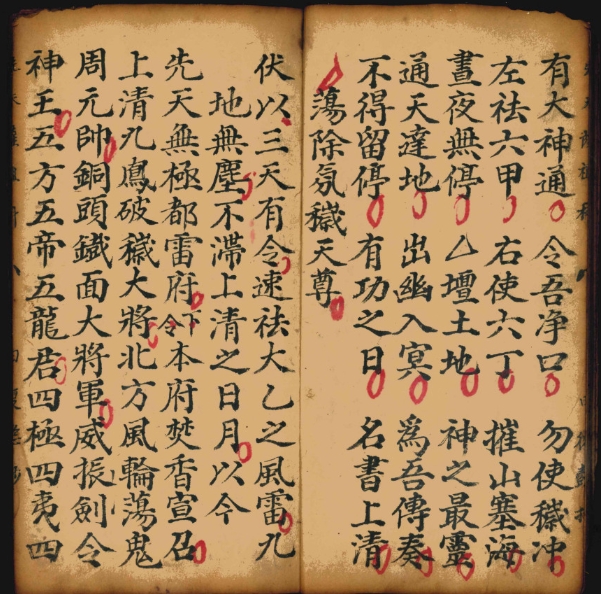 有大神通 令吾净口 勿使穢冲
左祛六甲 右使六丁 摧山塞海
晝夜無停 厶壇土地 神之最靈
通天達地 出幽入冥 爲吾傳奏
不得留停 有功之日 名書上清
蕩除氛穢天尊
伏以三天有令速祛大乙之風雷九
地無塵不滯上清之日月以今
先天無極都雷府下令本府焚香宣召
上清九鳳破穢大將北方風輪蕩鬼
周元帥銅頭鐵面大將軍威振劍令
神王五方五帝五龍君四極四夷四